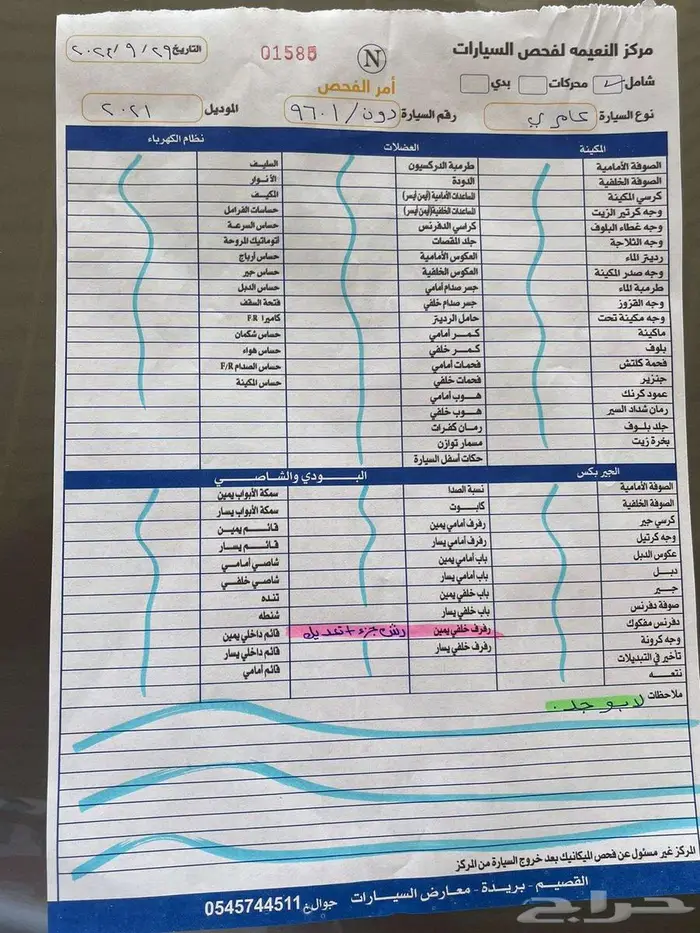 مركز النعيمه لفحص السيارات
N
01585
التاريخ ٢٠٢٤/٩/٢٩
أمر الفحص
شامل
محركات
بدي
نوع السيارة
رقم السيارة دون/٩٦٠١
الموديل ٢٠٢١
المكينة
الصوفة الأمامية
الصوفة الخلفية
كرسي المكينة
وجه كرتير الزيت
وجه غطاء البلوف
وجه الثلاجة
رديتر الماء
وجه صدر المكينة
طرمبة الماء
وجه القزوز
وجه مكينة تحت
ماكينة
بلوف
فحمة كلتش
جنزير
عمود كرنك
رمان شداد السير
جلد بلوف
بخرة زيت
العضلات
طرمبة الدركسيون
الدودة
المساعدات الأمامية (أيمن أيسر)
المساعدات الخلفية (أيمن أيسر)
كراسي الدفرنس
جلد المقصات
العكوس الأمامية
العكوس الخلفية
جسر صدام أمامي
جسر صدام خلفي
حامل الرديتر
كمر أمامي
كمر خلفي
فحمات أمامي
فحمات خلفي
هوب أمامي
هوب خلفي
رمان كفرات
مسمار توازن
حكات أسفل السيارة
نظام الكهرباء
السليف
الأنوار
المكيف
حساسات الفرامل
حساس السرعة
أتوماتيك المروحة
حساس أرباج
حساس جير
حساس الدبل
فتحة السقف
كاميرا F.R
حساس شكمان
حساس هواء
حساس الصدام F/R
حساس المكينة
الجير بكس
الصوفة الأمامية
الصوفة الخلفية
كرسي جير
وجه كرتيل
عكوس الدبل
دبل
جير
صوفة دفرنس
دفرنس مفكوك
وجه كرونة
تأخير في التبديلات
نتعه
البودي والشاصي
نسبة الصدا
كابوت
رفرف أمامي يمين
رفرف أمامي يسار
باب أمامي يمين
باب أمامي يسار
باب خلفي يمين
باب خلفي يسار
رفرف خلفي يمين رش جزء + تعديل
رفرف خلفي يسار
سمكة الأبواب يمين
سمكة الأبواب يسار
قائم يمين
قائم يسار
شاصي أمامي
شاصي خلفي
تنده
شنطه
قائم داخلي يمين
قائم داخلي يسار
قائم أمامي
ملاحظات
المركز غير مسئول عن فحص الميكانيك بعد خروج السيارة من المركز
القصيم - بريدة - معارض السيارات جوال/ 0545744511
حراج